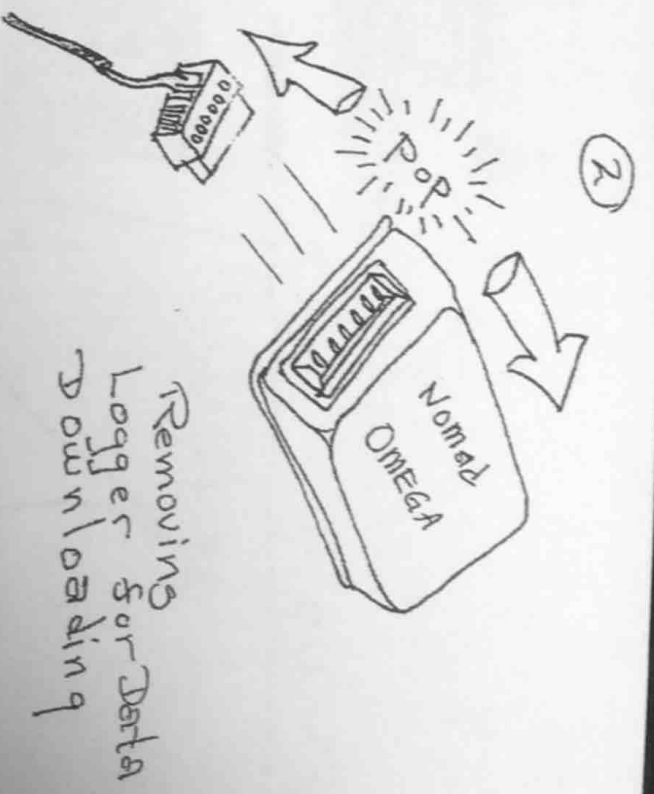 2
POP
Nomad
OMEGA
Removing
Logger for Data
Downloading